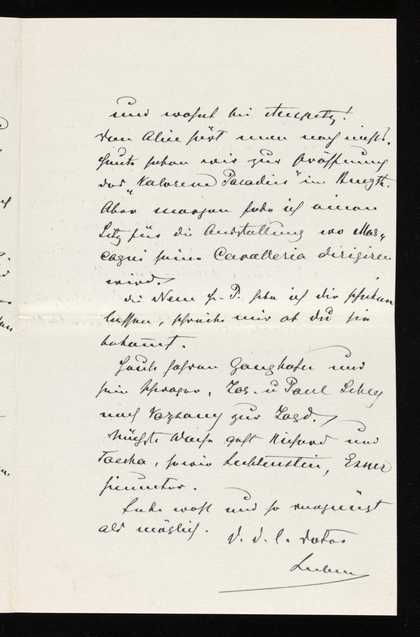 und wohnt bei
Von Alice hört man noch nichts.
Heute gehen wir zur Eröffnung
des "Verlorene Paradies" im
Aber morgen habe ich einen
Sitz für die Ausstellung wo Mas=
cagni seine Cavalleria dirigiren
wird.
Die Neue fr. P. habe ich dir schicken
lassen, schreibe mir ob du sie
bekommst.
Heute fahren Ganghofer und
sein Schwager, Jos. u Paul Schey
nach zur Jagd.
Nächste Woche geht Richard und
sowie Lichtenstein, Exner
hinunter.
Lebe wohl und so vergnügt
als möglich. D. d. l. Vater